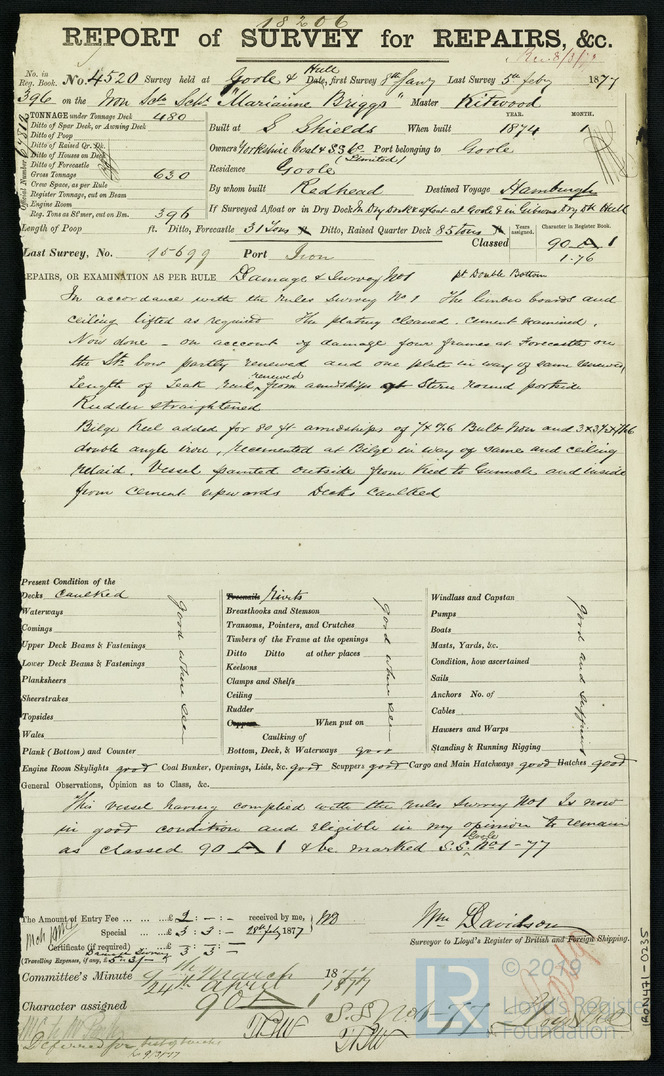 18206
REPORT of SURVEY for REPAIRS, &c.
No. in Reg. Book. No. 4520 Survey held at Goole & Hull Date, first Survey 8th Jany Last Survey 5th feby 1877
396 on the Iron Sctr Scht "Marianne Briggs" Master Kitwood
TONNAGE under Tonnage Deck 480
Ditto of Spar Deck, or Awning Deck
Ditto of Poop
Ditto of Raised Qr. Dk.
Ditto of Houses on Deck
Ditto of Forecastle
Gross Tonnage 630
Crew Space, as per Rule
Register Tonnage, cut on Beam
Engine Room
Reg. Tons as St'mer, cut on Bm. 396
Official Number
YEAR. MONTH.
Built at S Shields When built 1874 1
Owners Yorkshire Coal & SS Co (Limited) Port belonging to Goole
Residence Goole
By whom built Redhead Destined Voyage Hamburgh
If Surveyed Afloat or in Dry Dock In Dry Dock & afloat at Goole & in Gibsons Dry Dk Hull
Length of Poop ft. Ditto, Forecastle 31 Tons Ditto, Raised Quarter Deck 85 tons Classed Years assigned. Character in Register Book.
90 A 1
1.76
Last Survey, No. 15699 Port Iron
REPAIRS, OR EXAMINATION AS PER RULE Damage & Survey No1 pt Double Bottom
In accordance with the rules Survey No 1 The limber boards and
ceiling lifted as required The plating cleaned. cement examined.
Now done - on account of damage four frames at Forecastle on
the St. bow partly renewed and one plate in way of same renewed
Length of Teak rail renewed from amidships Stern round portside
Rudder straightened
Bilge Keel added for 80 ft amidships of 7 x 7/16 Bulb Iron and 3x3½x7/16
double angle iron, recemented at Bilge in way of same and ceiling
relaid. Vessel painted outside from Keel to Gunnule and inside
from cement upwards Decks Caulked
Present Condition of the
Decks Caulked
Waterways
Comings
Upper Deck Beams & Fastenings
Lower Deck Beams & Fastenings
Planksheers
Sheerstrakes
Topsides
Wales
Plank (Bottom) and Counter
good where seen
Treenails Rivets
Breasthooks and Stemson
Transoms, Pointers, and Crutches
Timbers of the Frame at the openings
Ditto Ditto at other places
Keelsons
Clamps and Shelfs
Ceiling
Rudder
Copper When put on
Caulking of
Bottom, Deck, & Waterways good
good where seen
Windlass and Capstan
Pumps
Boats
Masts, Yards, &c.
Condition, how ascertained
Sails
Anchors No. of
Cables
Hawsers and Warps
Standing & Running Rigging
good and sufficient
Engine Room Skylights good Coal Bunker, Openings, Lids, &c. good Scuppers good Cargo and Main Hatchways good Hatches good
General Observations, Opinion as to Class, &c.
This vessel having complied with the rules Survey No1 Is now
in good condition and eligible in my opinion to remain
as classed 90 A 1 & be marked S.S. Goole No 1-77
The Amount of Entry Fee £ 2 : - : - received by me,
Special £ 3 : 3 : - 28th feby 1877
Certificate (if required) 
Damage Survey 3 : 3 : -
(Travelling Expenses, if any, £
Wm Davidson
Surveyor to Lloyd's Register of British and Foreign Shipping.
Committee's Minute March 1877
24th April 1877
Character assigned 90 A 1
S.S No1-77
Deferred for
9/3/77
LR
© 2019
Lloyd's Register
Foundation
IRON471-0235